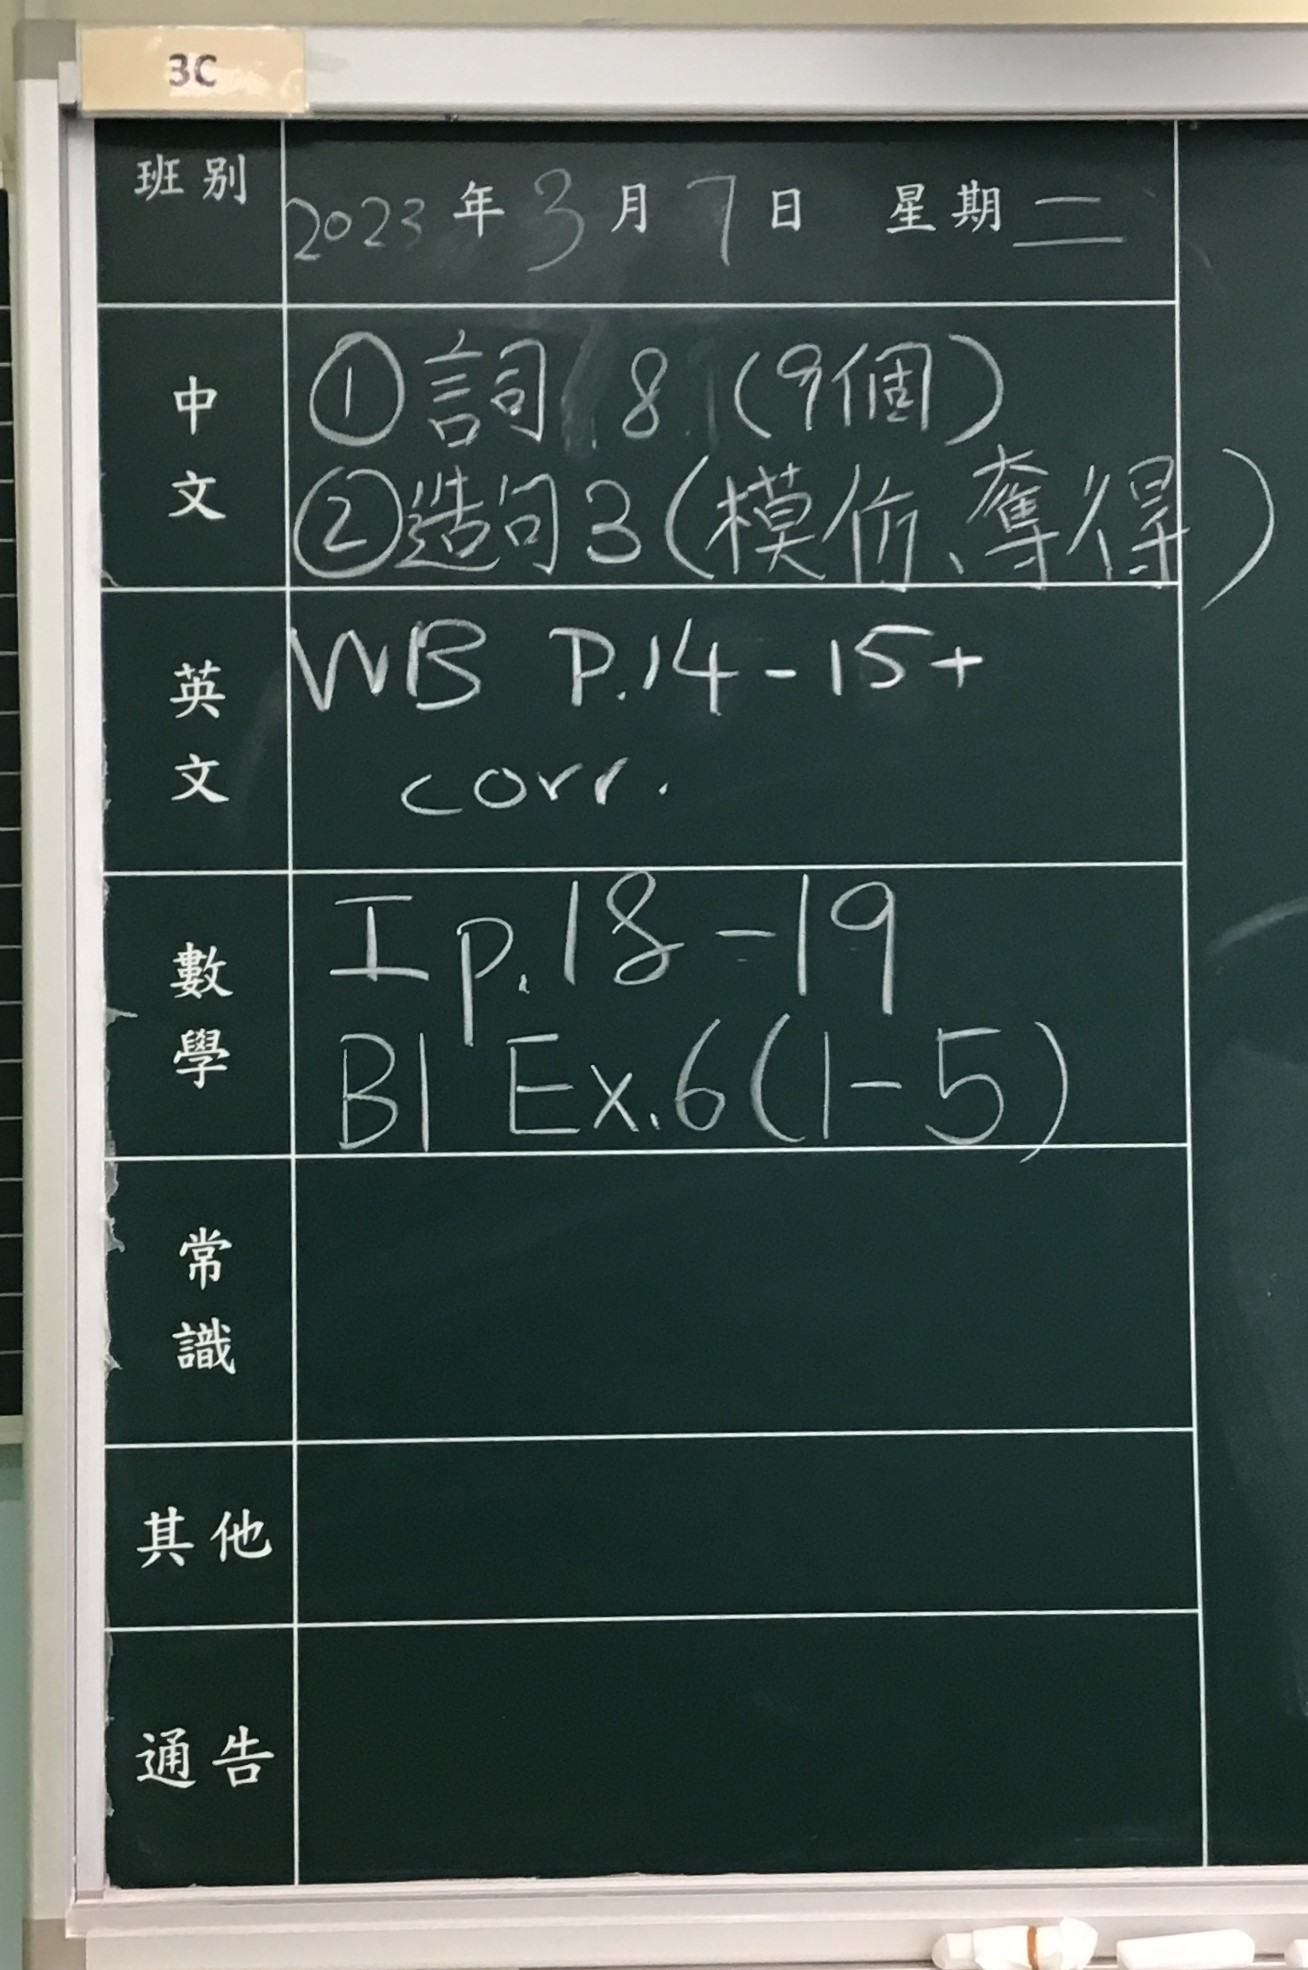 3C
班別
2023年3月7日 星期二
中文
①詞 8 (9個)
②造句3(模仿、奪得)
英文
WB P.14-15+
corr.
數學
I p.18-19
B1 Ex.6(1-5)
常識
其他
通告